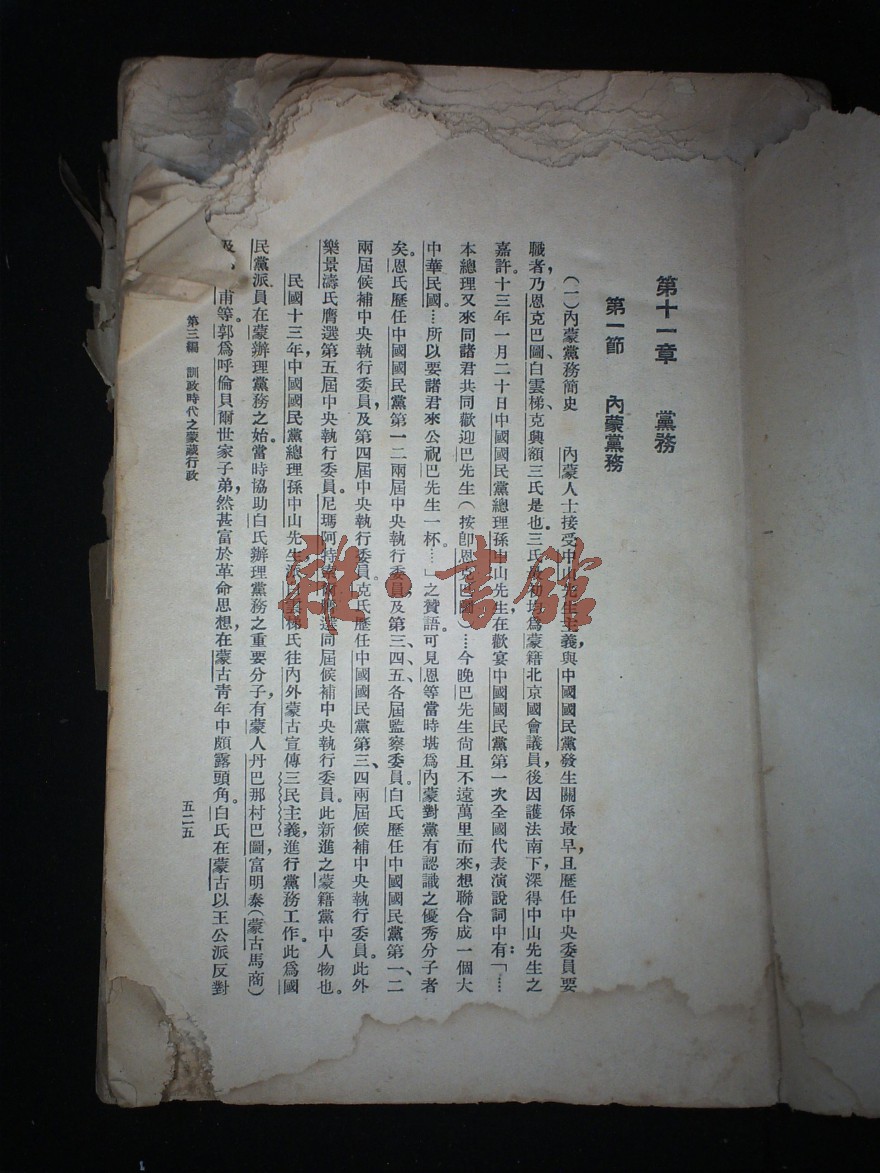 第十一章　黨務
第一節　內蒙黨務
(一)內蒙黨務簡史　內蒙人士接受中山先生主義，與中國國民黨發生關係最早，且歷任中央委員要
職者，乃恩克巴圖、白雲梯、克興額三氏是也。三氏最初均為蒙籍北京國會議員，後因護法南下，深得中山先生之
嘉許。十三年一月二十日中國國民黨總理孫中山先生，在歡宴中國國民黨第一次全國代表演說詞中，有：「……
本總理又來同諸君共同歡迎巴先生(按卽恩克巴圖)……今晚巴先生尙且不遠萬里而來，想聯合成一個大
中華民國。……所以要諸君來公祝巴先生一杯……」之贊語。可見恩等當時堪為內蒙對黨有認識之優秀分子者
矣。恩氏歷任中國國民黨第一二兩屆中央執行委員，及第三、四、五各屆監察委員。白氏歷任中國國民黨第一、二
兩屆候補中央執行委員，及第四屆中央執行委員。克氏歷任中國國民黨第三、四兩屆候補中央執行委員。此外
樂景濤氏膺選第五屆中央執行委員。尼瑪阿特索膺選同屆候補中央執行委員。此新進之蒙籍黨中人物也。
民國十三年，中國國民黨總理孫中山先生，派白雲梯氏往內外蒙古宣傳三民主義，進行黨務工作。此為國
民黨派員在蒙辦理黨務之始。當時協助白氏辦理黨務之重要分子，有蒙人丹巴那村巴圖，富明泰(蒙古馬商)
及甫等。郭為呼倫貝爾世家子弟，然甚富於革命思想，在蒙古靑年中頗露頭角。白氏在蒙古以王公派反對
第三編　訓政時代之蒙藏行政
五二五
雜·書館